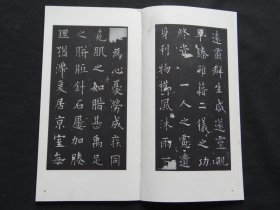 遠肅群生咸遂靈貺
畢臻雖藉二儀之功
終資一人之慮遺
身利物櫛風沐雨百
為心憂勞成疾同
堯肌之如腊甚禹足
之胼胝針石屢加腠
理猶滯爰居京室每